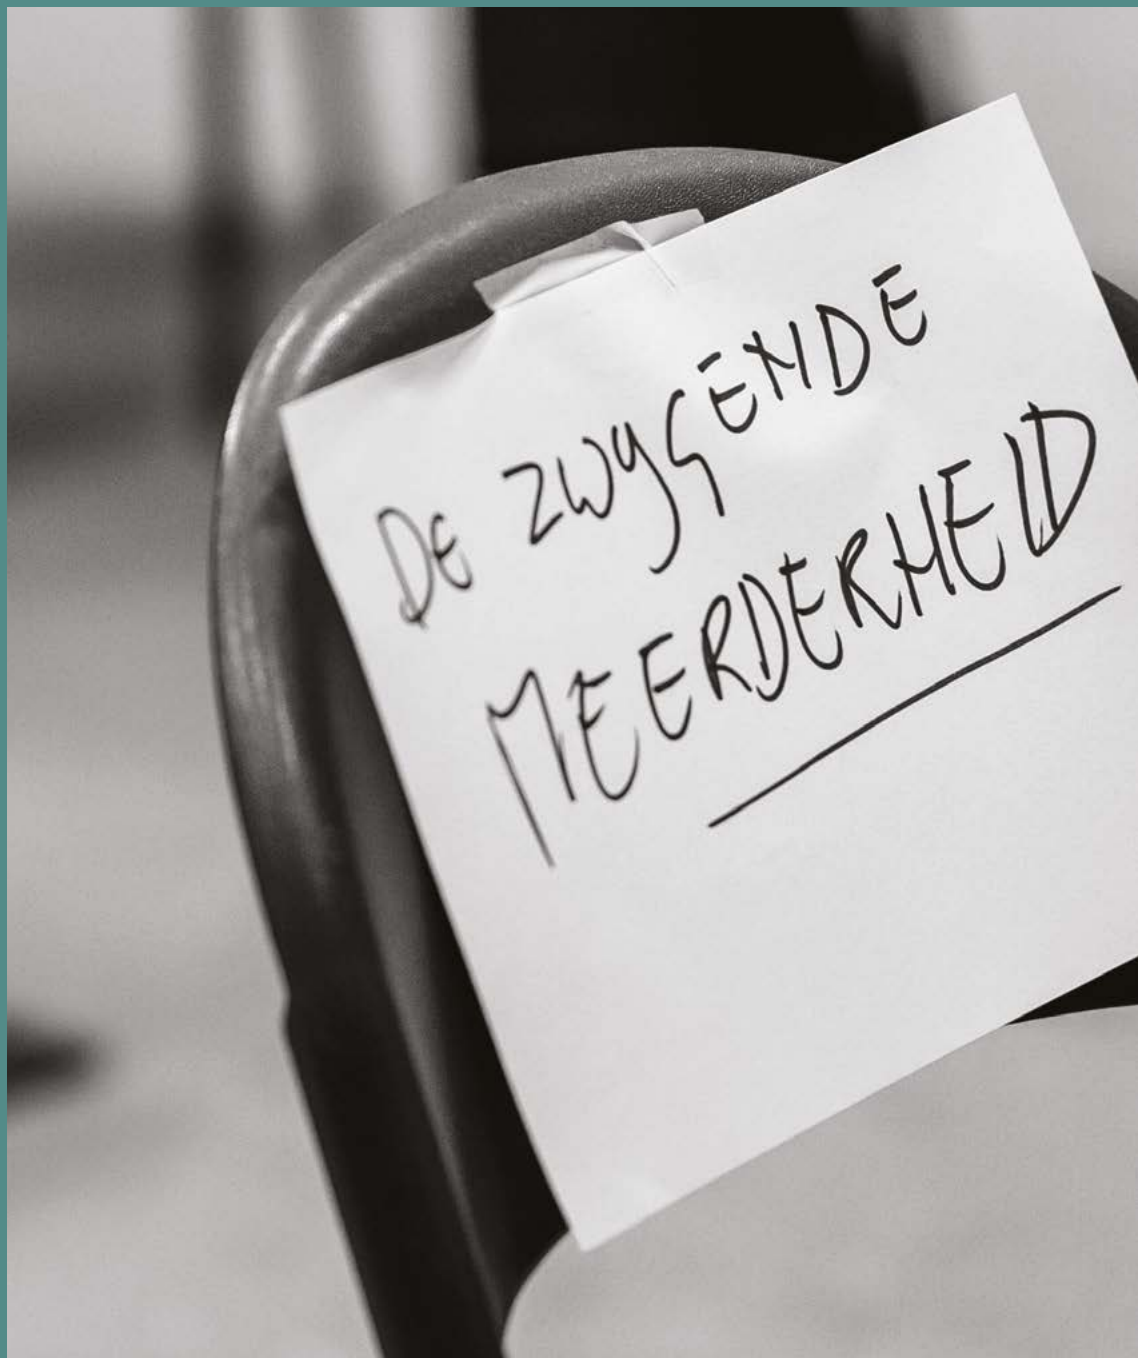 DE ZWYGENDE
MEERDERHEID